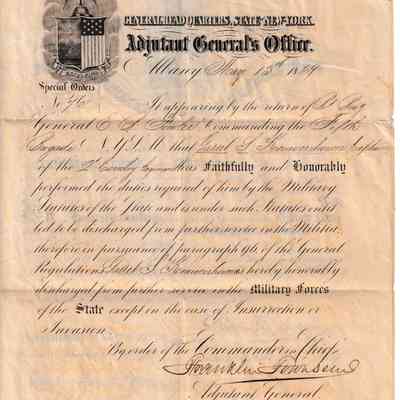 GENERAL HEAD QUARTERS, STATE OF NEW-YORK.
Adjutant General's Office.
Albany May 13th
Special Orders
No.
It appearing by the return of
General Commanding the Fifth
Brigade N.Y.S.M. that
of the has Faithfully and Honorably
performed the duties required of him by the Military
Statutes of the State and is under such Statutes entit-
led to be discharged from further service in the Militia,
therefore in pursuance of paragraph of the General
Regulations hereby honorably
discharged from further service in the Military Forces
of the State except in the case of Insurrection or
Invasion.
By order of the Commander in Chief
Franklin Townsend
Adjutant General